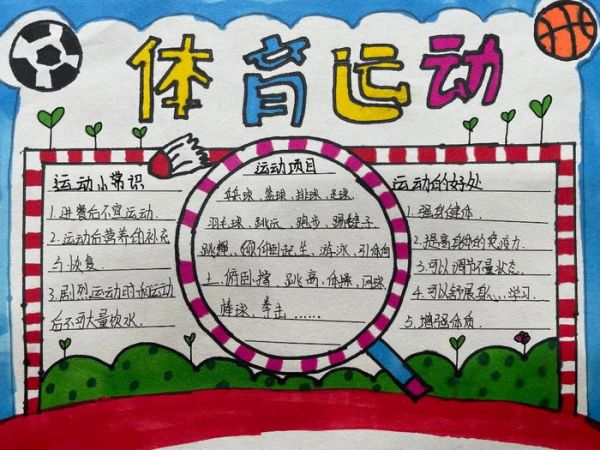 体育运动
运动小常识
1.进餐后不宜运动.
2.运动后营养的补充
与恢复.
3.剧烈运动时和运动
后不可大量饮水.
运动项目
乒乓球、篮球、排球、足球、
羽毛球、跳远、跑步、踢毽子、
跳绳、仰卧起坐、游泳、引体向
上、俯卧撑、跳高、体操、网球、
棒球、拳击……
运动的好处
1.强身健体.
2.提高身体的免疫力.
3.可以调节 状态.
4.可以舒展身 学习.
5.增强体质.